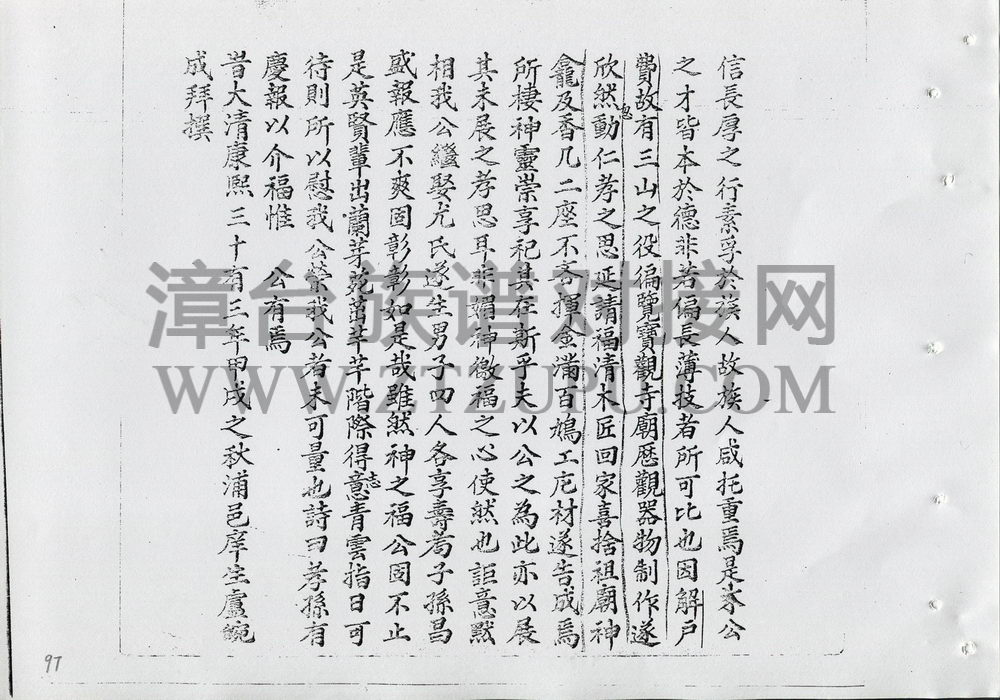 信長厚之行素孚於族人故族人咸托重焉是來公
之才皆本於德非若偏長薄技者所可比也因解戶
費故有三山之役徧覽寶觀寺廟歷觀器物制作遂
欣然動仁孝之思延請福清木匠回家喜捨祖廟神
龕及香几二座不吝揮金滿百鳩工庀材遂告成焉
所棲神靈崇享祀其在斯乎夫以公之為此亦以展
其未展之孝思耳非媚神徼福之心使然也詎意默
相我公繼娶尤氏遂生男子四人各享壽考子孫昌
盛報應不爽固彰彰如是哉雖然神之福公固不止
是英賢輩出蘭芽苑茁芊芊階際得意志青雲指日可
待則所以慰我公榮我公者未可量也詩曰孝孫有
慶報以介福惟 公有焉
昔大清康熙三十有三年甲戌之秋浦邑庠生盧
成拜撰
漳台族谱对接网
WWW.ZTZUPU.COM
97